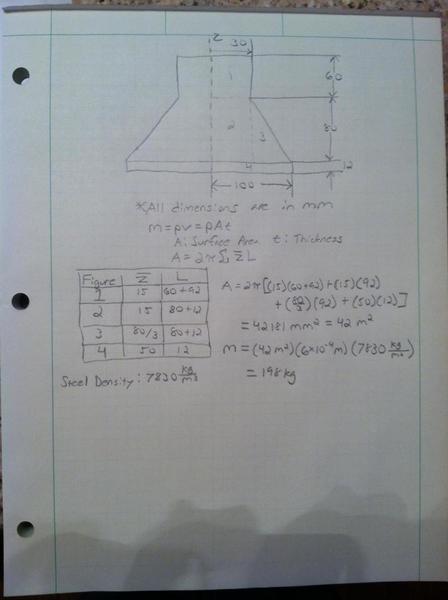 z
30
1
60
2
3
80
4
12
100
*All dimensions are in mm
m=ρv=ρAt
A: Surface Area t: Thickness
A=2π∑ z̄ L
Figure z̄ L
1 15 60+92
2 15 80+12
3 80/3 80+12
4 50 12
Steel Density: 7830 kg/m³
A=2π[(15)(60+92)+(15)(92)
+(80/3)(92)+(50)(12)]
=42181 mm²=42 m²
m=(42 m²)(6×10⁻⁴m)(7830 kg/m³)
=198kg